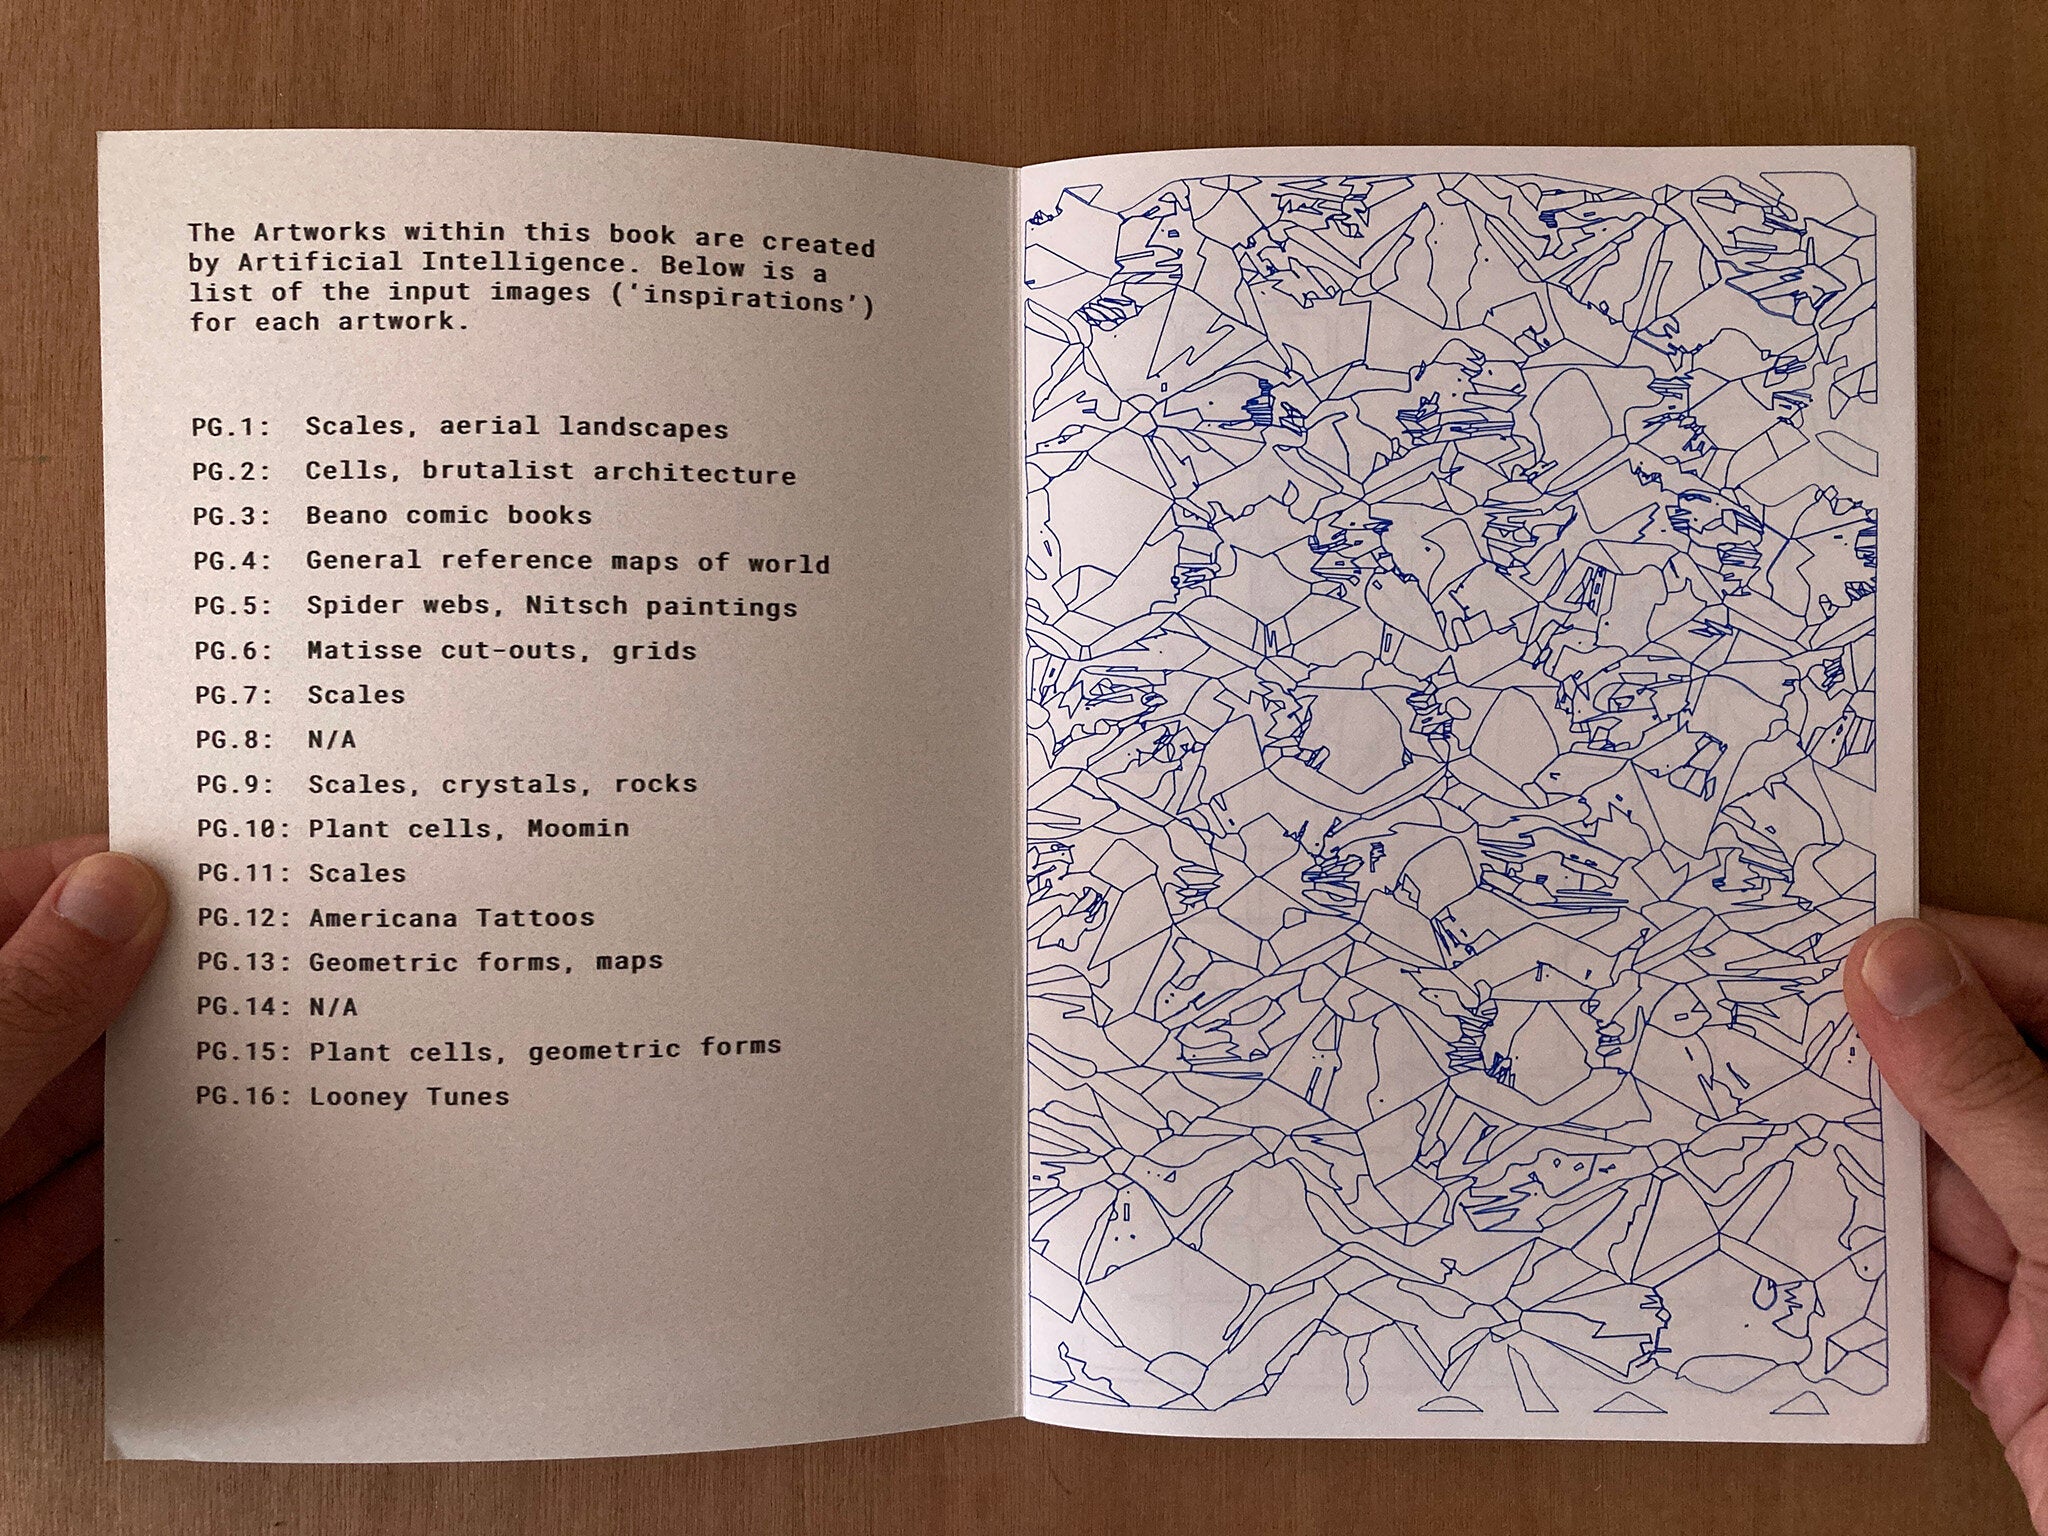 The Artworks within this book are created
by Artificial Intelligence. Below is a
list of the input images ('inspirations')
for each artwork.
PG.1: Scales, aerial landscapes
PG.2: Cells, brutalist architecture
PG.3: Beano comic books
PG.4: General reference maps of world
PG.5: Spider webs, Nitsch paintings
PG.6: Matisse cut-outs, grids
PG.7: Scales
PG.8: N/A
PG.9: Scales, crystals, rocks
PG.10: Plant cells, Moomin
PG.11: Scales
PG.12: Americana Tattoos
PG.13: Geometric forms, maps
PG.14: N/A
PG.15: Plant cells, geometric forms
PG.16: Looney Tunes